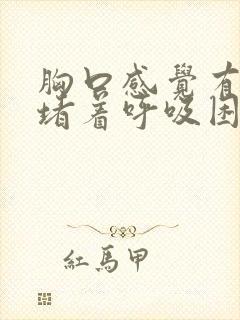 胸口感覺有
堵着呼吸困
紅馬甲